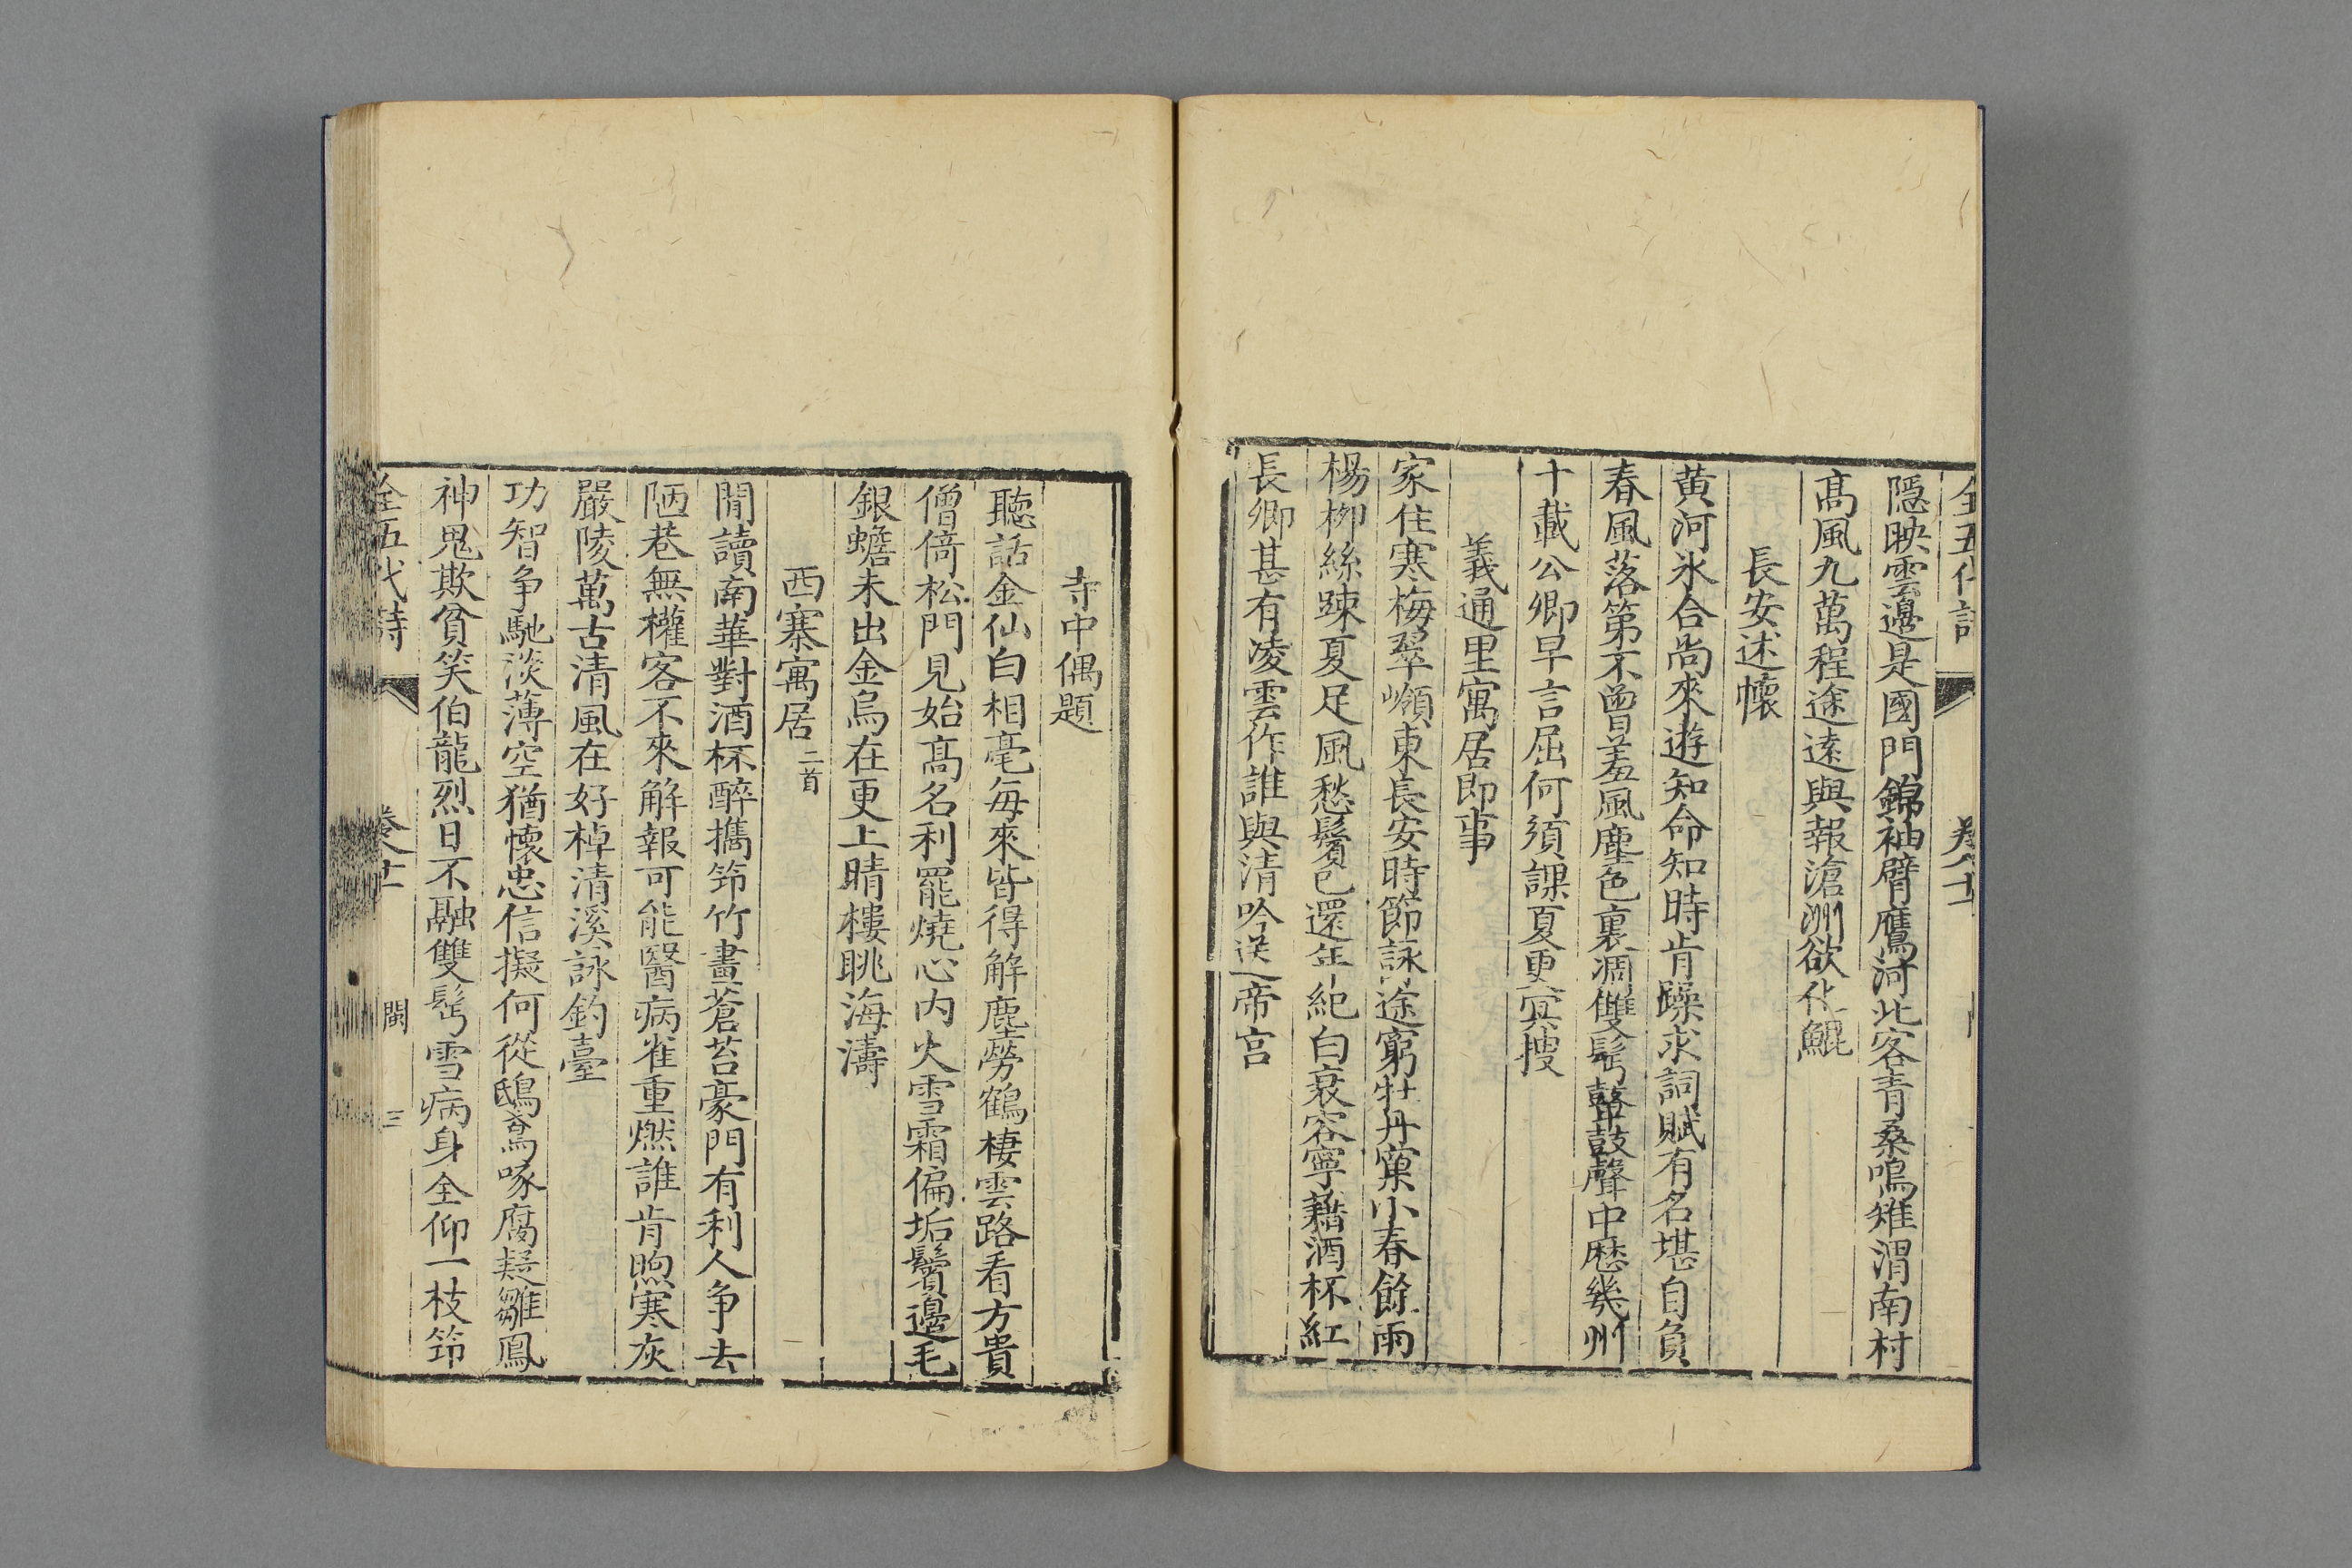 全五代詩 卷八十
隱映雲邊是國門錦袖臂鷹河北客青桑鳴雉渭南村
髙風九萬程途遠與報滄洲欲化鯤
長安述懷
黃河氷合尚來遊知命知時肯躁求詞賦有名堪自負
春風落第不曾羞風塵色裏凋雙鬢鼙鼓聲中歷幾州
十載公卿早言屈何須課夏更冥搜
義通里寓居即事
家住寒梅翠嶺東長安時節詠途窮牡丹窠小春餘雨
楊栁絲踈夏足風愁鬢已還年紀白衰容寧藉酒杯紅
長卿甚有凌雲作誰與清吟送帝宫
寺中偶題
聽話金仙白相毫每來皆得解塵勞鶴棲雲路看方貴
僧倚松門見始髙名利罷燒心内火雪霜偏垢鬢邊毛
銀蟾未出金烏在更上晴樓眺海濤
西寨寓居二首
閒讀南華對酒杯醉攜笻竹畫蒼苔豪門有利人争去
陋巷無權客不來解報可能醫病雀重燃誰肯煦寒灰
嚴陵萬古清風在好棹清溪詠釣臺
功智争馳淡薄空猶懷忠信擬何從鴟鳶啄腐疑雛鳳
神鬼欺貧笑伯龍烈日不融雙鬢雪病身全仰一枝笻
全五代詩 閩 三